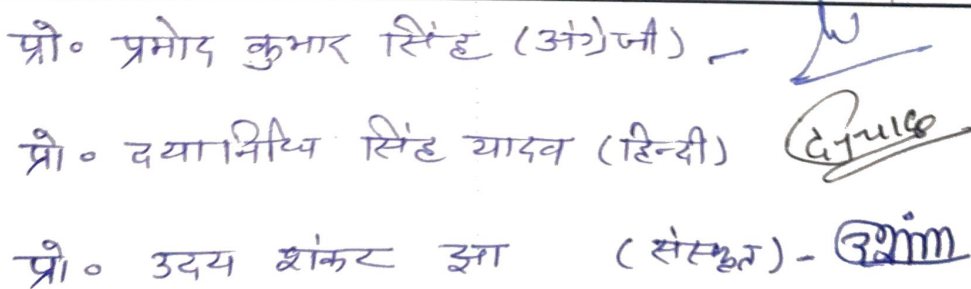 प्रो० प्रमोद कुमार सिंह (अंग्रेजी) -
प्रो० दयानिधि सिंह यादव (हिन्दी)
प्रो० उदय शंकर झा (संस्कृत) -